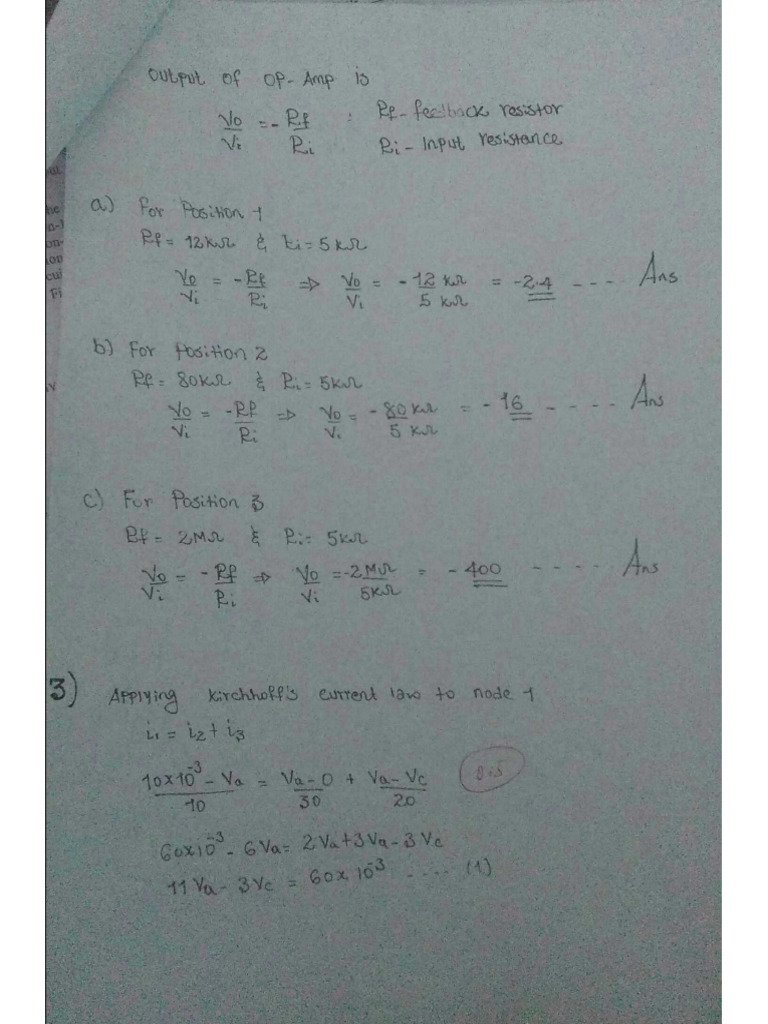 Output of Op-Amp is
Vo/Vi = - Rf/Ri : Rf - feedback resistor
Ri - Input resistance
a) For Position 1
Rf = 12kΩ & ti = 5kΩ
Vo/Vi = -Rf/Ri ⇒ Vo/Vi = -12 kΩ/5 kΩ = -2.4 --- Ans
b) For Position 2
Rf = 80kΩ & Ri = 5kΩ
Vo/Vi = -Rf/Ri ⇒ Vo/Vi = -80 kΩ/5 kΩ = -16 ---- Ans
c) For Position 3
Rf = 2MΩ & Ri = 5kΩ
Vo/Vi = -Rf/Ri ⇒ Vo/Vi = -2MΩ/5kΩ = -400 ---- Ans
3) Applying Kirchhoff's current law to node 1
i₁ = i₂ + i₃
10x10⁻³ - Va/10 = Va - 0/30 + Va - Vc/20
60x10⁻³ - 6Va = 2Va + 3Va - 3Vc
11Va - 3Vc = 60x10⁻³ .... (1)